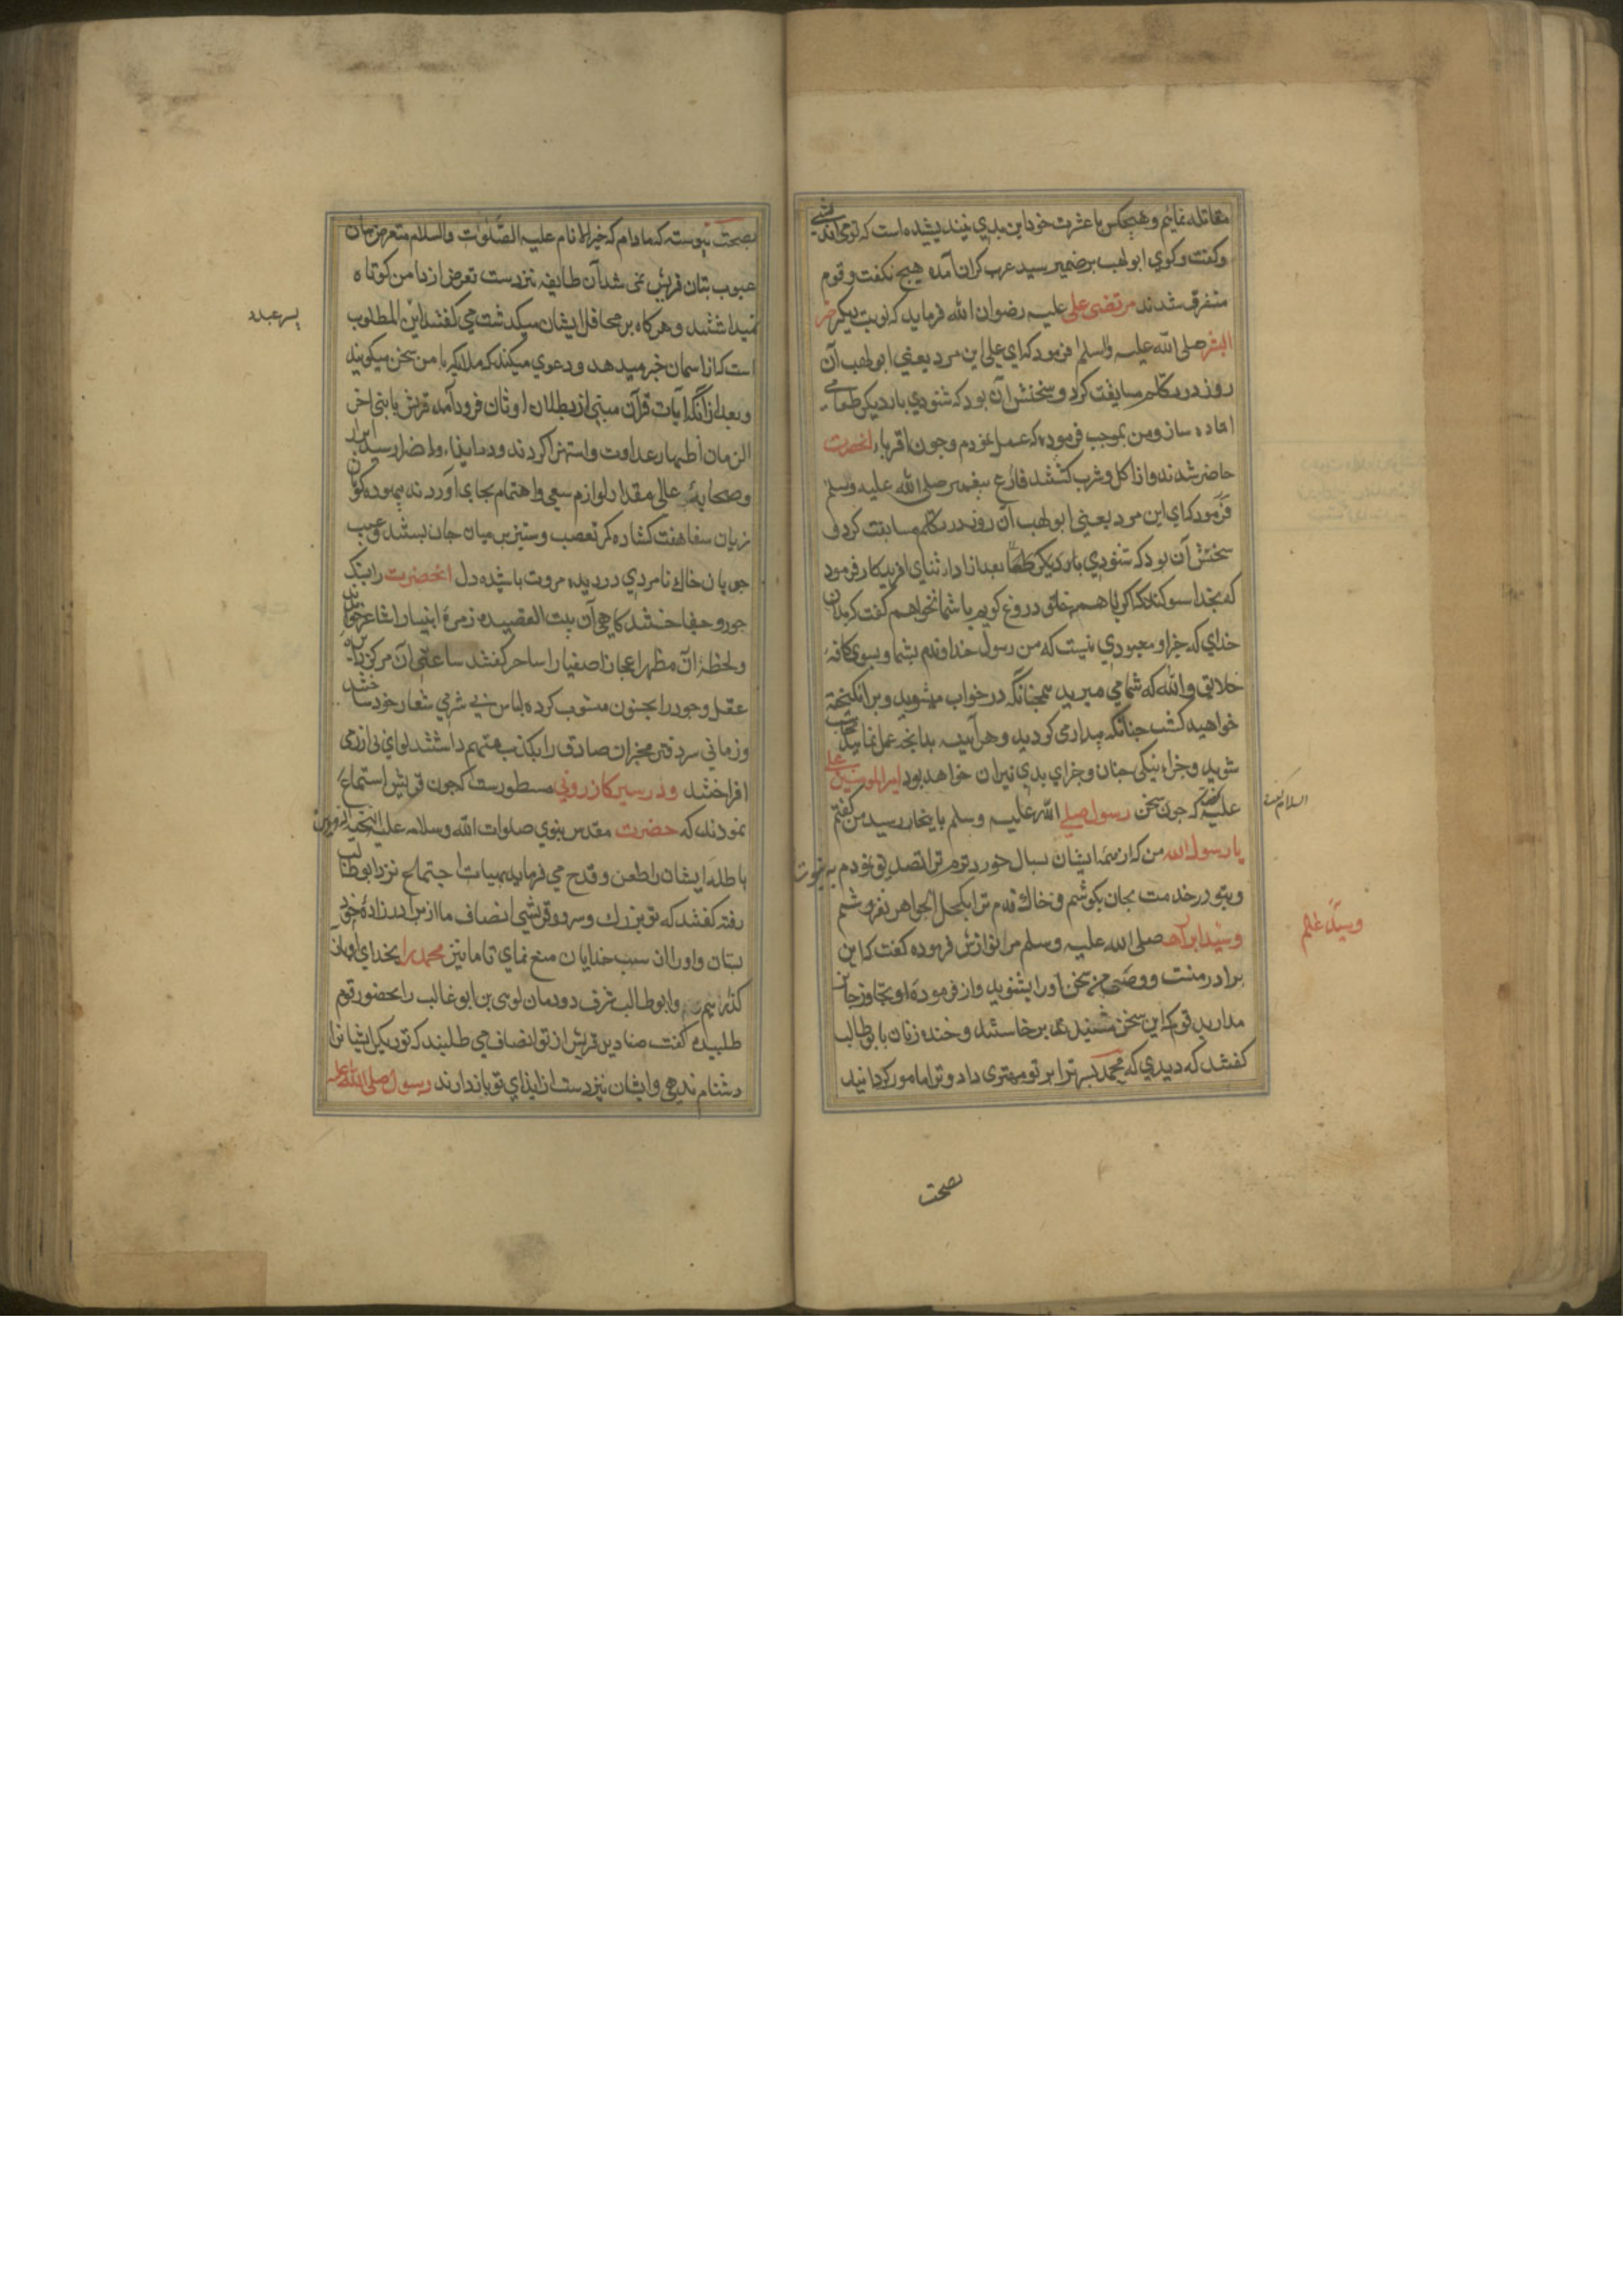 مقاتله نمائیم و هیچکس با عشرت خود این بدی نیندیشیده است که تو می اندیشی
وکفت وکوی ابو لهب بر ضمیر سید عرب کران آمده هیچ نکفت و قوم
متفرق شدند مرتضی علی علیه رضوان الله فرماید که نوبت دیکر خیر
البشر صلی الله علیه والسلم فرمود که ای علی این مرد یعنی ابو لهب آن
روز در تکلم مسابقت کرد و سخنش آن بود که شنودی بار دیکر طعامی
اماده ساز و من بموجب فرموده که عمل نمودم و چون اقرباء انحضرت
حاضر شدند و از اکل و شرب کشتند فارغ پیغمبر صلی الله علیه وسلم
فرمود که ای این مرد یعنی ابو لهب آن روز در تکلم مسابقت کرد و
سخنش آن بود که شنودی بار دیکر طعاما بعد از ادار ثنای افریدکار فرمود
که بخدا سوکند که اکر با همه خلق دروغ کویم با شما نخواهم کفت کر بدان
خدای که جز او معبودی نیست که من رسول خداوندم بشما و بسوی کافه
خلایق والله که شما می میرید همچنانکه در خواب میشوید و برانکیخته
خواهید کشت چنانکه بیدار می کردید و هر آینه بدانچه عمل نمایید محاسب
شوید و جزاء نیکی جنان و جزای بدی نیران خواهد بود امیر المومنین علی
علیه کفت که چون سخن رسول صلی الله علیه وسلم باینجا رسید من کفتم
السلام
یا رسول الله من که از همه ایشان بسال خوردترم ترا تصدیق نمودم به نبوت
و بتو در خدمت بجان بکوشم و خاک قدم ترا بکحل الجواهر نفروشم
وسید ابرار صلی الله علیه وسلم مرا نوازش فرموده کفت که این
وسید عالم
برادر منست و وصی من سخن اورا بشنوید و از فرموده او تجاوز جایز
مدارید قوم که این سخن شنیدند بر خاستند و خنده زنان با بو طالب
کفتند که دیدی که محمد پسر ترا بر تو مهتری داد و ترا مامور کردانید
بصحت
بصحت پیوسته که مادام که خیر الانام علیه الصلوات والسلام متعرض بیان
عیوب بتان قریش نمی شد آن طایفه نیز دست تعرض از دامن کوتاه
نمیداشتند و هر کاه بر محافل ایشان میکدشت می کفتند ابن المطلوب
پسر عبد
است که از اسمان خبر میدهد و دعوی میکند که ملایکه با من سخن میکویند
و بعد از آنکه آیات قرآن مبنی از بطلان اوثان فرود آمد قریش با نبی اخر
الزمان اظهار عداوت و استهزا کردند و در ایذاء و اضرار سید ابرار
و صحابهٔ عالی مقدار لوازم سعی و اهتمام بجای آوردند بیهوده کویان
زبان سفاهت کشاده کمر تعصب و ستیز بر میان جان بستند و عیب
جویان خاک نامردی در دیده مروت پاشیده دل انحضرت را بتک
جور و جفا خستند کاهی آن بیت القصیده زمره انبیا را شاعر خواندند
و لحظهٔ ان مظهر اعجاز اصفیا را ساحر کفتند ساعتی آن مرکز دایره
عقل و جود را بجنون منسوب کرده لباس بی شرمی شعار خود ساختند
و زمانی سر دفتر مخبران صادق را بکذب متهم داشتند لوای بی ازرمی
افراختند و در سیر کازرونی مسطورست که چون قریش استماع
نمودند که حضرت مقدس نبوی صلوات الله وسلامه علیه الهه و دین
باطله ایشان را طعن و قدح می فرماید بهیات اجتماع نزد ابوطالب
رفته کفتند که تو بزرک و سرور قریشی انصاف ما از برادر زاده خود
بستان و اورا از سب خدایان منع نمای تا ما نیز محمد را بخدای او باز
کذاریم و ابو طالب شرف دودمان لوی بن ابو غالب را بحضور قوم
طلبیده کفت صنادید قریش از تو انصاف می طلبند که تو دیکر ایشانرا
دشنام ندهی و ایشان نیز دست از ایذای تو بازدارند رسول صلی الله علیه